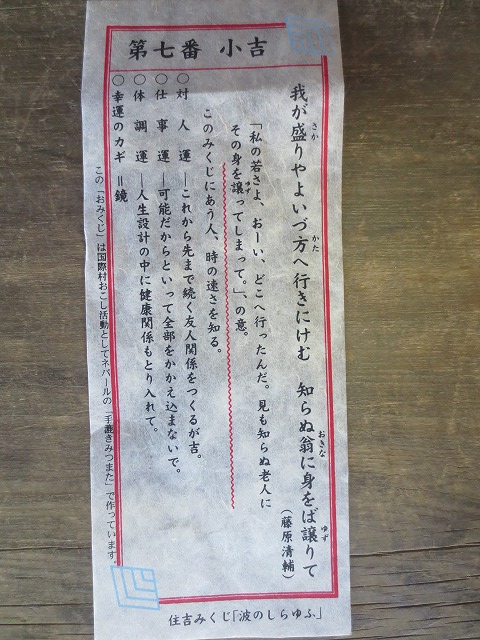 第七番 小吉
我が盛りやよいづ方へ行きにけむ 知らぬ翁に身をば譲りて
(藤原清輔)
「私の若さよ、おーい、どこへ行ったんだ。見も知らぬ老人に
その身を譲ってしまって。」、の意。
このみくじにあう人、時の速さを知る。
○対人運―これから先まで続く友人関係をつくるが吉。
○仕事運―可能だからといって全部をかかえ込まないで。
○体調運―人生設計の中に健康関係もとり入れて。
○幸運のカギ=鏡
この「おみくじ」は国際村おこし活動としてネパールの「手漉きみつまた」で作っています
住吉みくじ「波のしらゆふ」